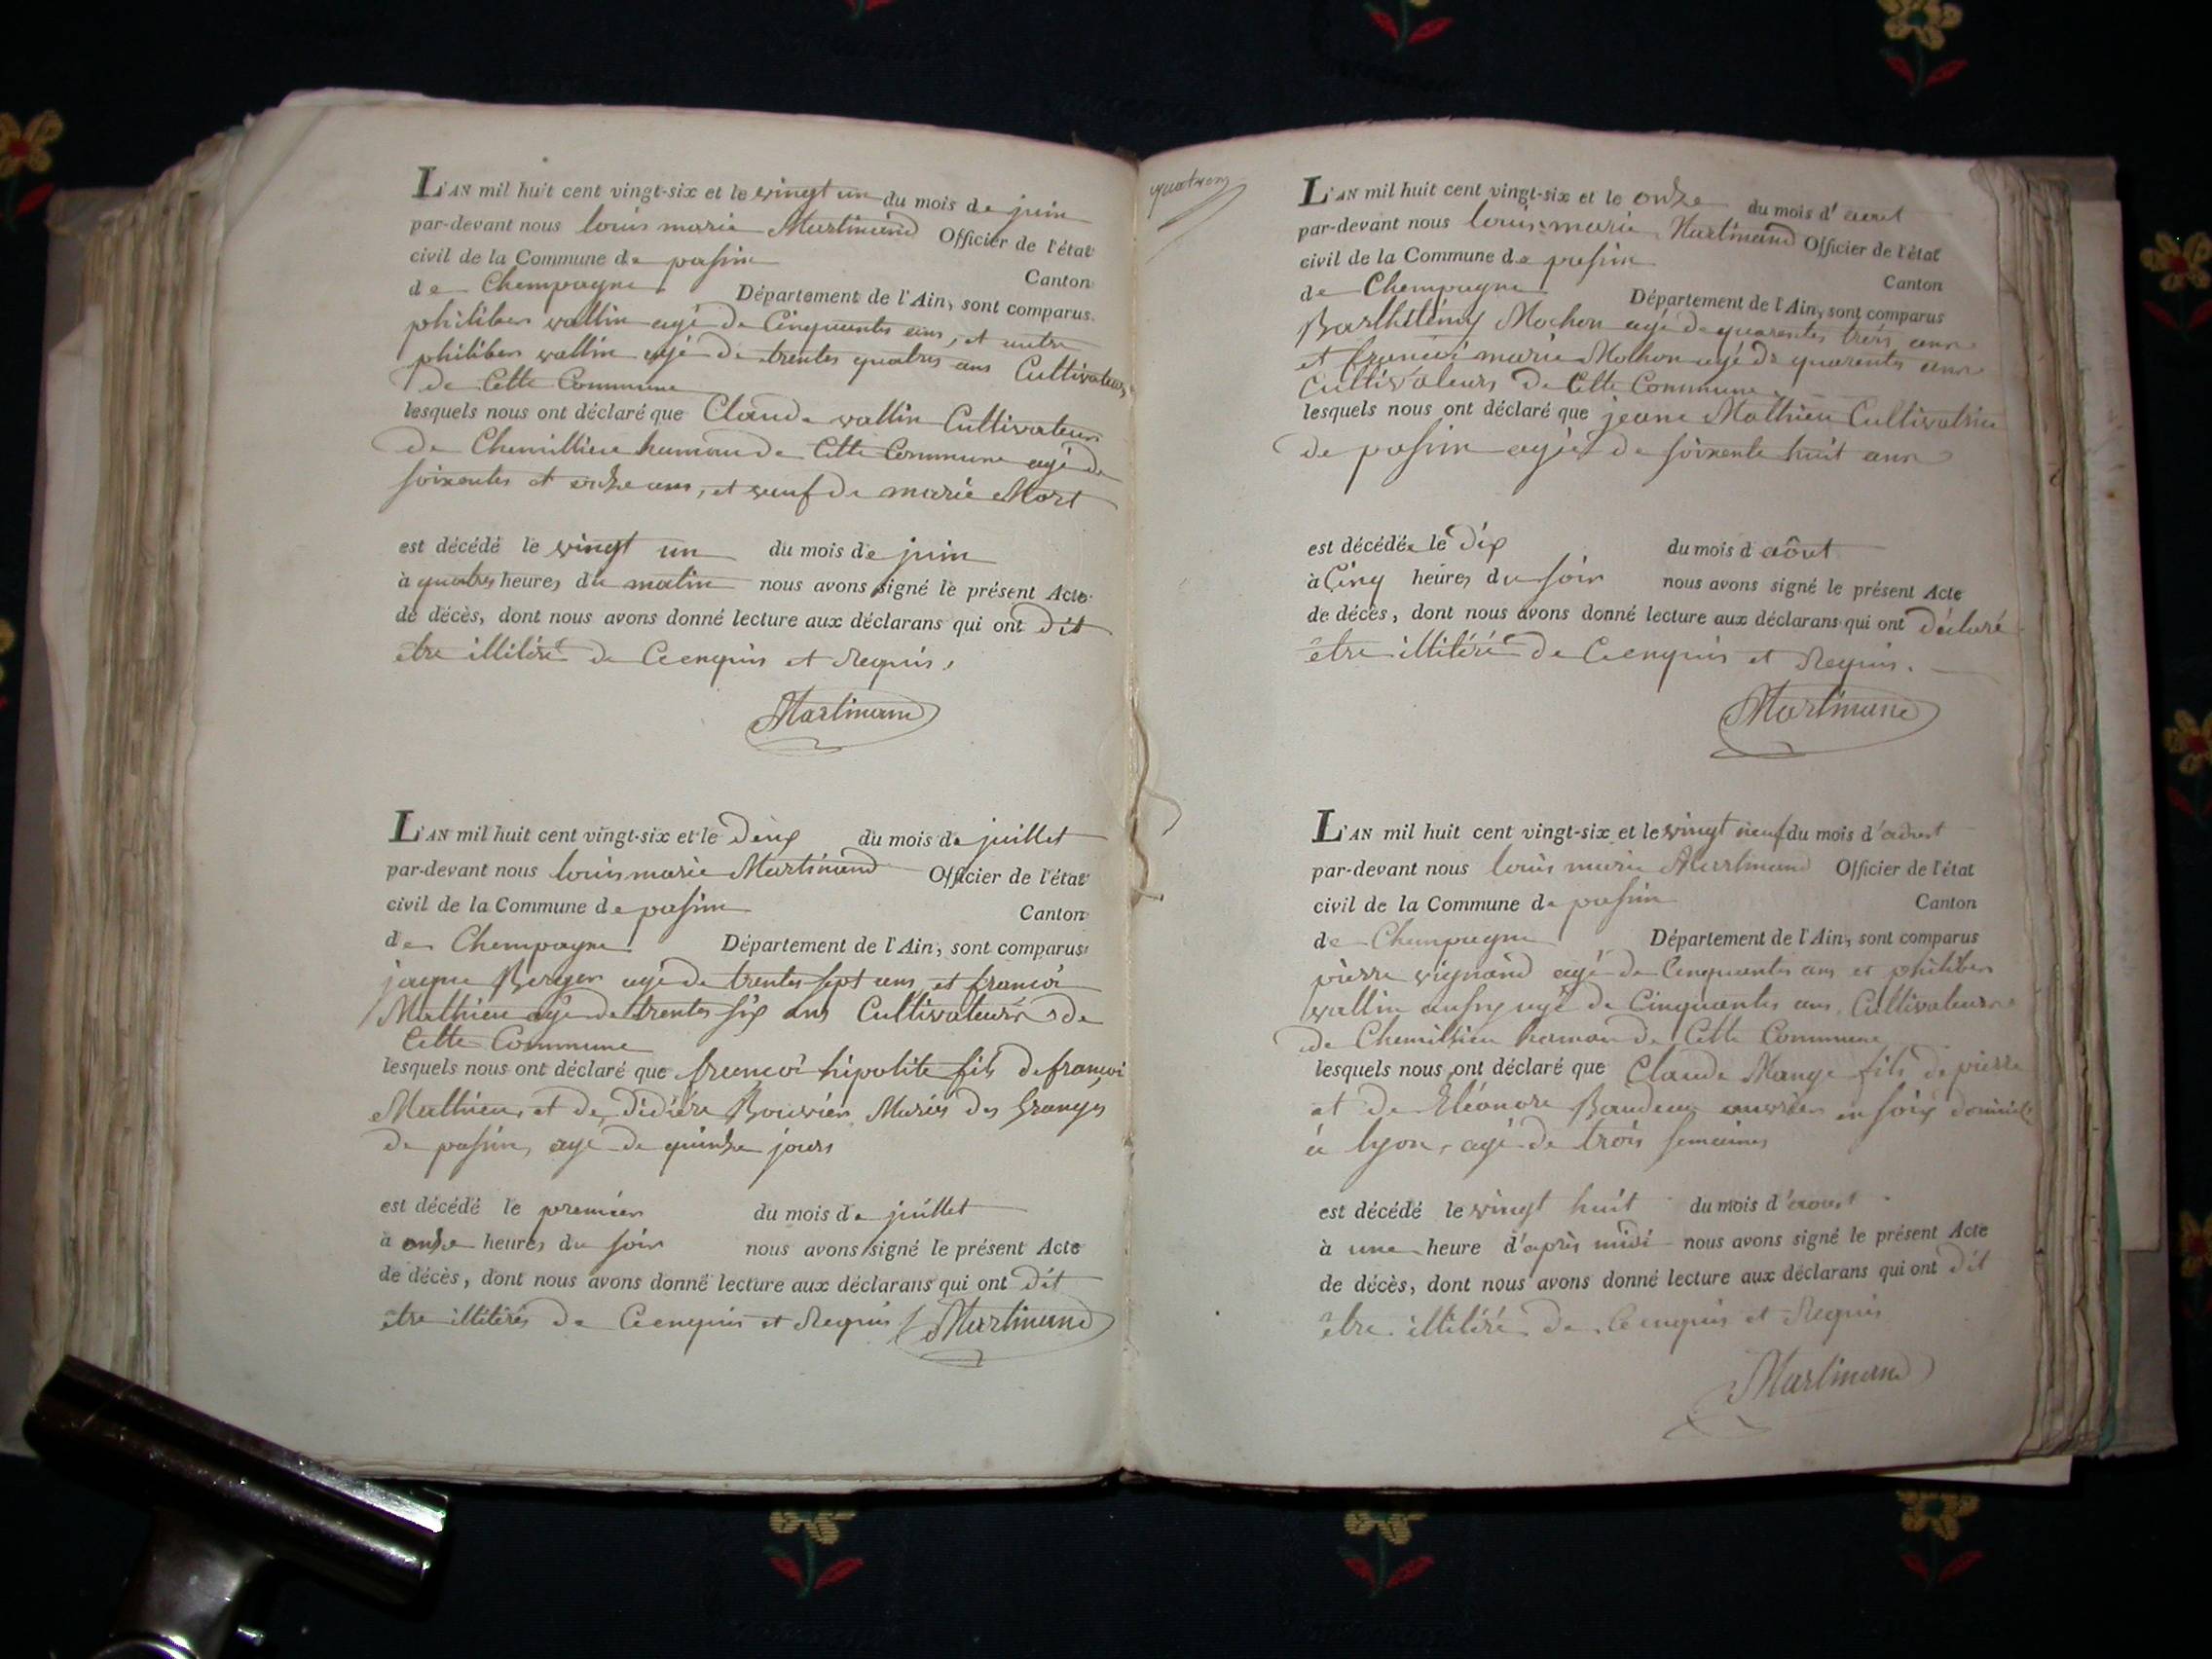 L'AN mil huit cent vingt-six et le vingt un du mois de juin
par-devant nous louis marie Martinand Officier de l'état
civil de la Commune de pasin
Canton
de Champagne Département de l'Ain, sont comparus
philiber vallin agé de Cinquantes ans, et autre
philiber vallin agé de trentes quatres ans Cultivateurs
de Cette Commune
lesquels nous ont déclaré que Claude vallin Cultivateur
de Chemillieu hamau de Cette Commune agé de
soixentes et onze ans, et veuf de marie Mort
est décédé le vingt un du mois de juin
à quatres heures du matin nous avons signé le présent Acte
de décès, dont nous avons donné lecture aux déclarans qui ont dit
etre illitéré de Ceenquis et Requis,
Martinand
L'AN mil huit cent vingt-six et le deux du mois de juillet
par-devant nous louis marie Martinand Officier de l'état
civil de la Commune de pasin
Canton
de Champagne Département de l'Ain, sont comparus
jaque Berger agé de trentes sept ans et françoi
Mathieu agé de trentes six ans Cultivateurs de
Cette Commune
lesquels nous ont déclaré que françoi hipolite fils de françoi
Mathieu, et de didière Bouvier Mariés des Granges
de pasin, agé de quinze jours
est décédé le premier du mois de juillet
à onze heures du soir nous avons signé le présent Acte
de décès, dont nous avons donné lecture aux déclarans qui ont dit
être illitérés de Ceenquis et Requis Martinand
L'AN mil huit cent vingt-six et le onze du mois d'aout
par-devant nous louis marie Martinand Officier de l'état
civil de la Commune de pasin
Canton
de Champagne Département de l'Ain, sont comparus
Barthélémy Mochon agé de quarentes trois ans
et françoi marie Mochon agé de quarentes ans
Cultivateurs de Cette Commune
lesquels nous ont déclaré que jeane Mathieu Cultivatrice
de pasin agée de soixente huit ans
est décédée le dix du mois d aôut
à Cinq heures du soir nous avons signé le présent Acte
de décès, dont nous avons donné lecture aux déclarans qui ont déclaré
être illitéré de Ceenquis et Requis.
Martinand
L'AN mil huit cent vingt-six et le vingt neuf du mois d'aout
par-devant nous louis marie Martinand Officier de l'état
civil de la Commune de pasin
Canton
de Champagne Département de l'Ain, sont comparus
pierre vignand agé de Cinquantes ans et philiber
vallin ausy agé de Cinquantes ans, Cultivateurs
de Chemillieu hamau de Cette Commune
lesquels nous ont déclaré que Claude Mange fils de pierre
et de Eléonore Baudeug ouvrier en soix
à lyon, agé de trois semaines
est décédé le vingt huit du mois d'aout
à une heure d'après midi nous avons signé le présent Acte
de décès, dont nous avons donné lecture aux déclarans qui ont dit
être illitéré de Ceenquis et Requis
Martinand